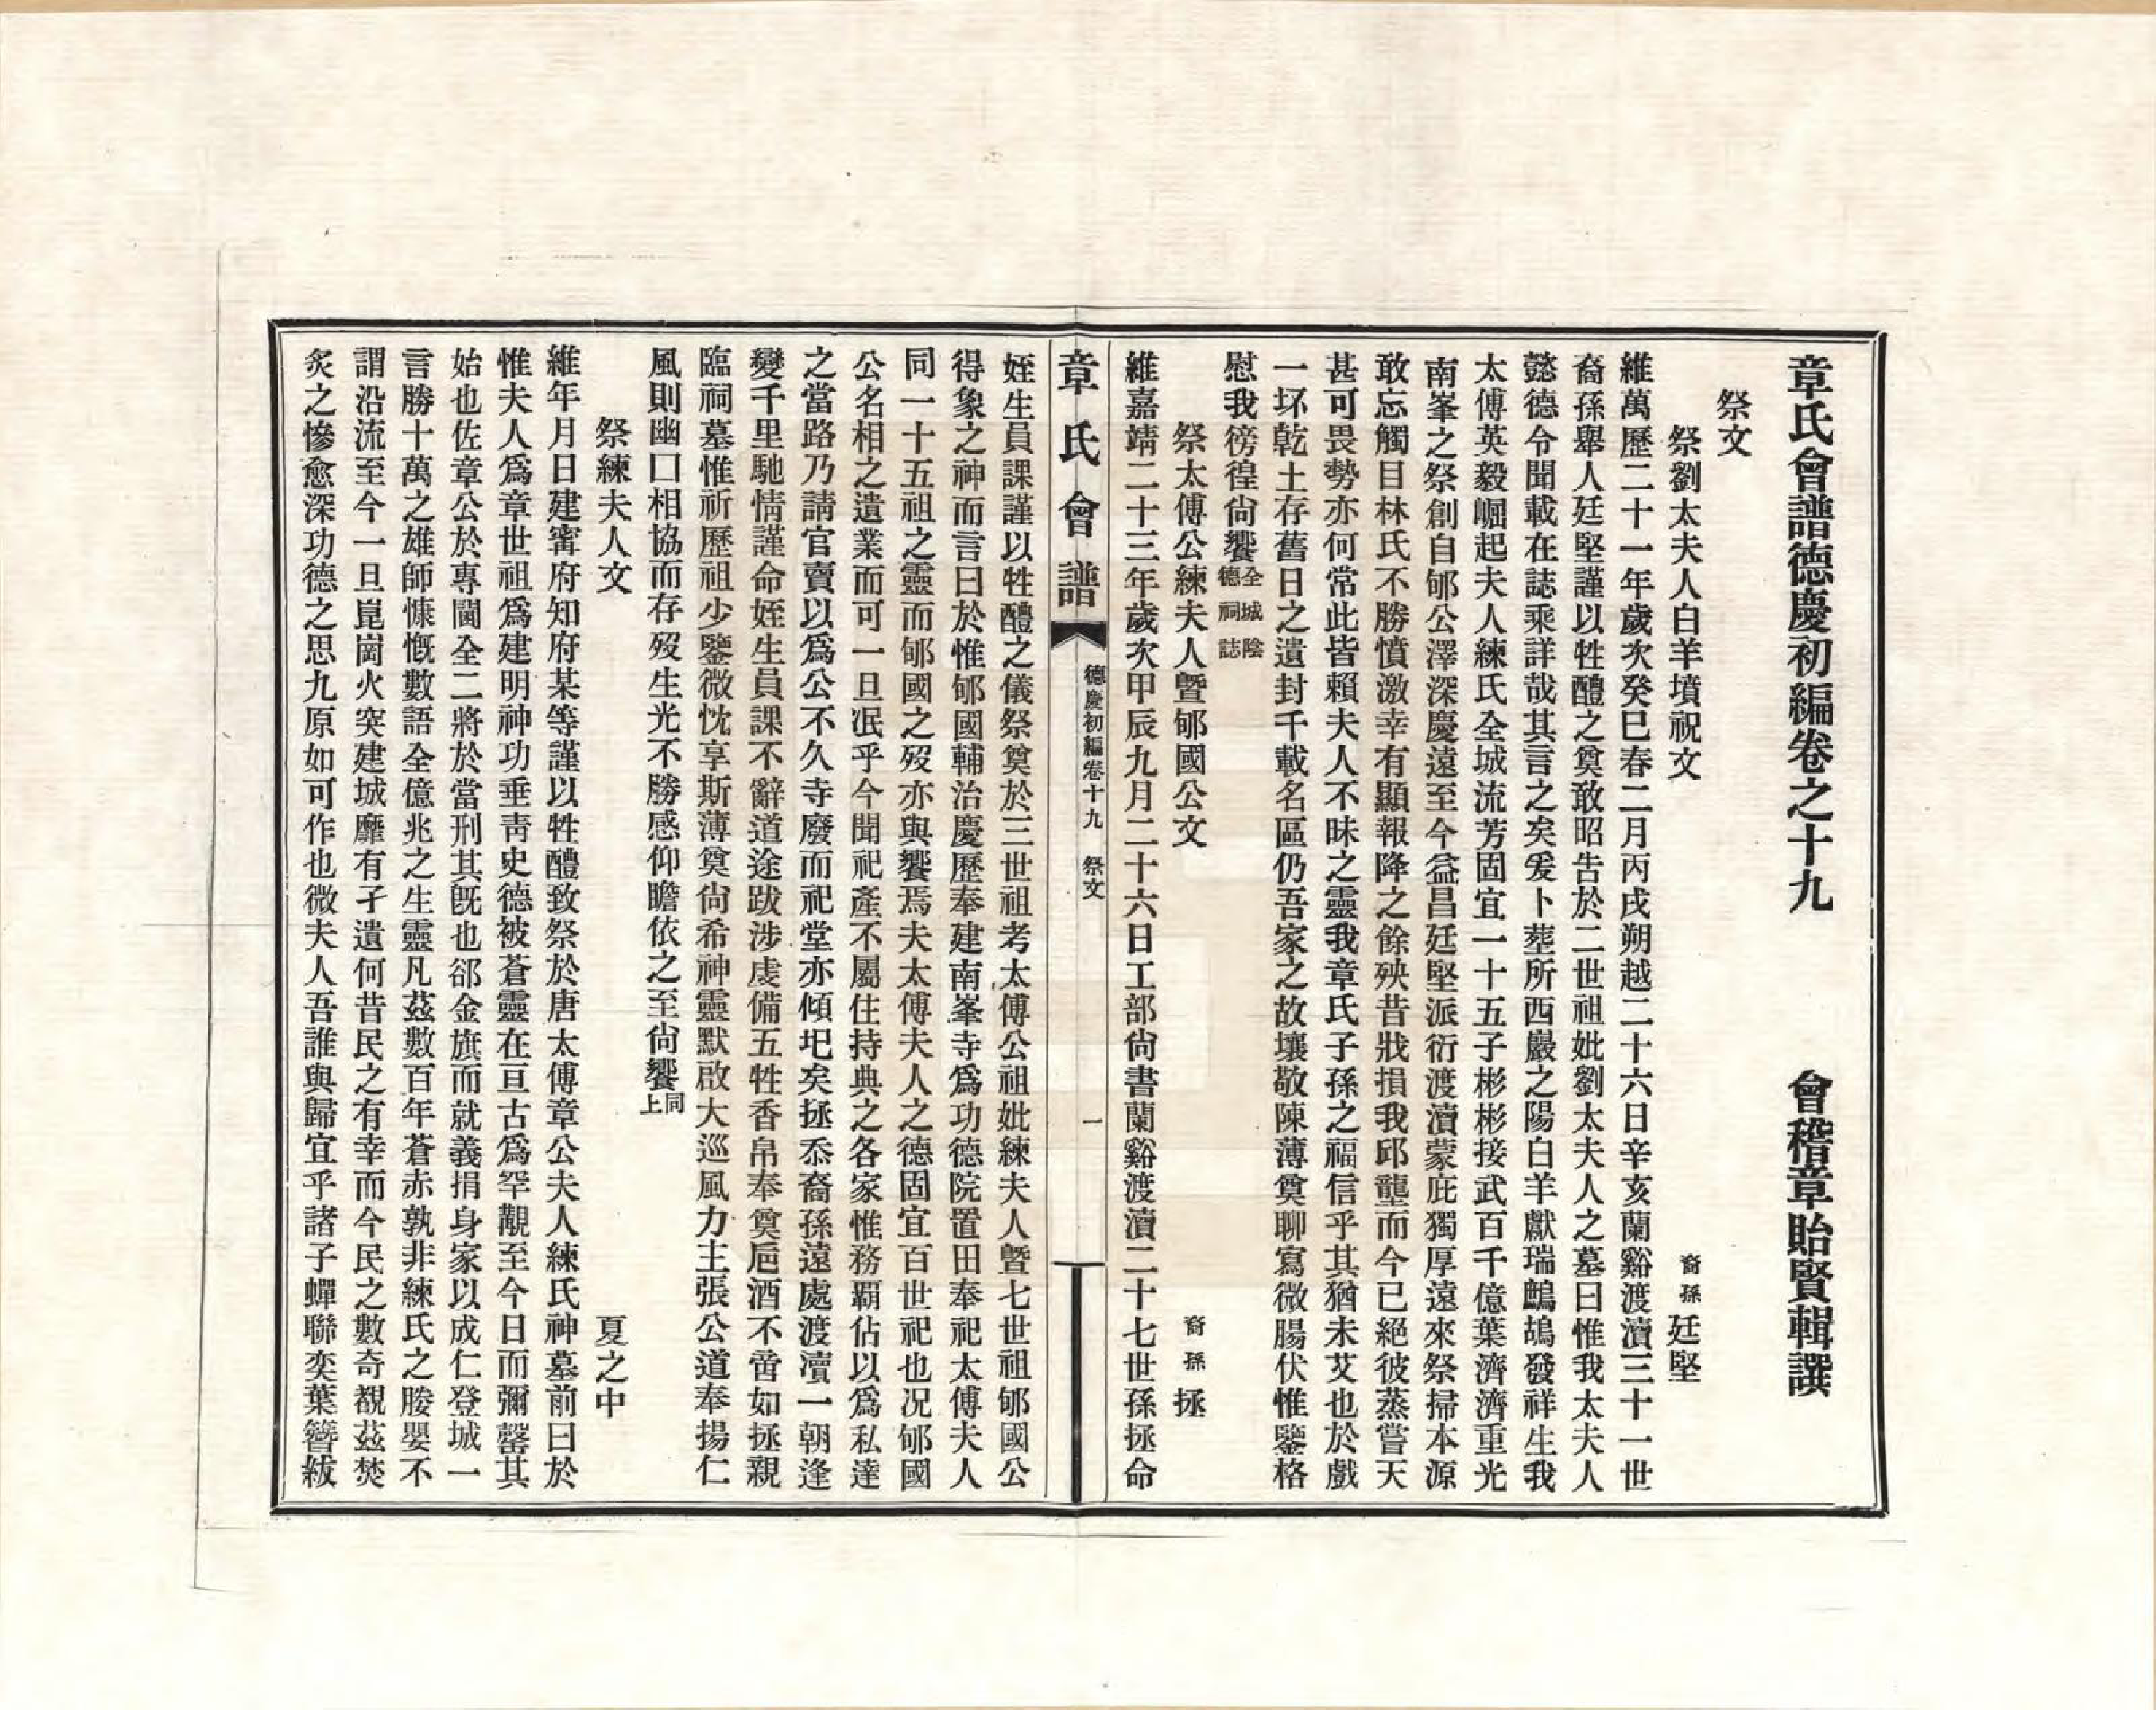 章氏會譜德慶初編卷之十九　會稽章貽賢輯譔
祭文
祭劉太夫人白羊墳祝文　裔孫廷堅
維萬歷二十一年歲次癸巳春二月丙戌朔越二十六日辛亥蘭谿渡瀆三十一世
裔孫舉人廷堅謹以牲醴之奠敢昭告於二世祖妣劉太夫人之墓曰惟我太夫人
懿德令聞載在誌乘詳哉其言之矣爰卜葬所西巖之陽白羊獻瑞鷓鴣發祥生我
太傅英毅崛起夫人練氏全城流芳固宜一十五子彬彬接武百千億葉濟濟重光
南峯之祭創自郇公澤深慶遠至今益昌廷堅派衍渡瀆蒙庇獨厚遠來祭掃本源
敢忘觸目林氏不勝憤激幸有顯報降之餘殃昔戕損我邱壟而今已絕彼蒸嘗天
甚可畏勢亦何常此皆賴夫人不昧之靈我章氏子孫之福信乎其猶未艾也於戲
一坏乾土存舊日之遺封千載名區仍吾家之故壤敬陳薄奠聊寫微腸伏惟鑒格
慰我徬徨尙饗全城陰德祠誌
祭太傅公練夫人暨郇國公文　裔孫拯
維嘉靖二十三年歲次甲辰九月二十六日工部尙書蘭谿渡瀆二十七世孫拯命
章氏會譜　德慶初編卷十九　祭文　一
姪生員課謹以牲醴之儀祭奠於三世祖考太傅公祖妣練夫人暨七世祖郇國公
得象之神而言曰於惟郇國輔治慶歷奉建南峯寺爲功德院置田奉祀太傅夫人
同一十五祖之靈而郇國之歿亦與饗焉夫太傅夫人之德固宜百世祀也况郇國
公名相之遺業而可一旦泯乎今聞祀產不屬住持典之各家惟務覇佔以爲私達
之當路乃請官賣以爲公不久寺廢而祀堂亦傾圯矣拯忝裔孫遠處渡瀆一朝逢
變千里馳情謹命姪生員課不辭道途跋涉虔備五牲香帛奉奠巵酒不啻如拯親
臨祠墓惟祈歷祖少鑒微忱享斯薄奠尙希神靈默啟大巡風力主張公道奉揚仁
風則幽囗相協而存歿生光不勝感仰瞻依之至尙饗同上
祭練夫人文　夏之中
維年月日建寗府知府某等謹以牲醴致祭於唐太傅章公夫人練氏神墓前曰於
惟夫人爲章世祖爲建明神功垂靑史德被蒼靈在亘古爲罕覯至今日而彌罄其
始也佐章公於專閫全二將於當刑其旣也郤金旗而就義捐身家以成仁登城一
言勝十萬之雄師慷慨數語全億兆之生靈凡茲數百年蒼赤孰非練氏之朘嬰不
謂沿流至今一旦崑崗火突建城靡有孑遺何昔民之有幸而今民之數奇覩茲焚
炙之慘愈深功德之思九原如可作也微夫人吾誰與歸宜乎諸子蟬聯奕葉簪紱